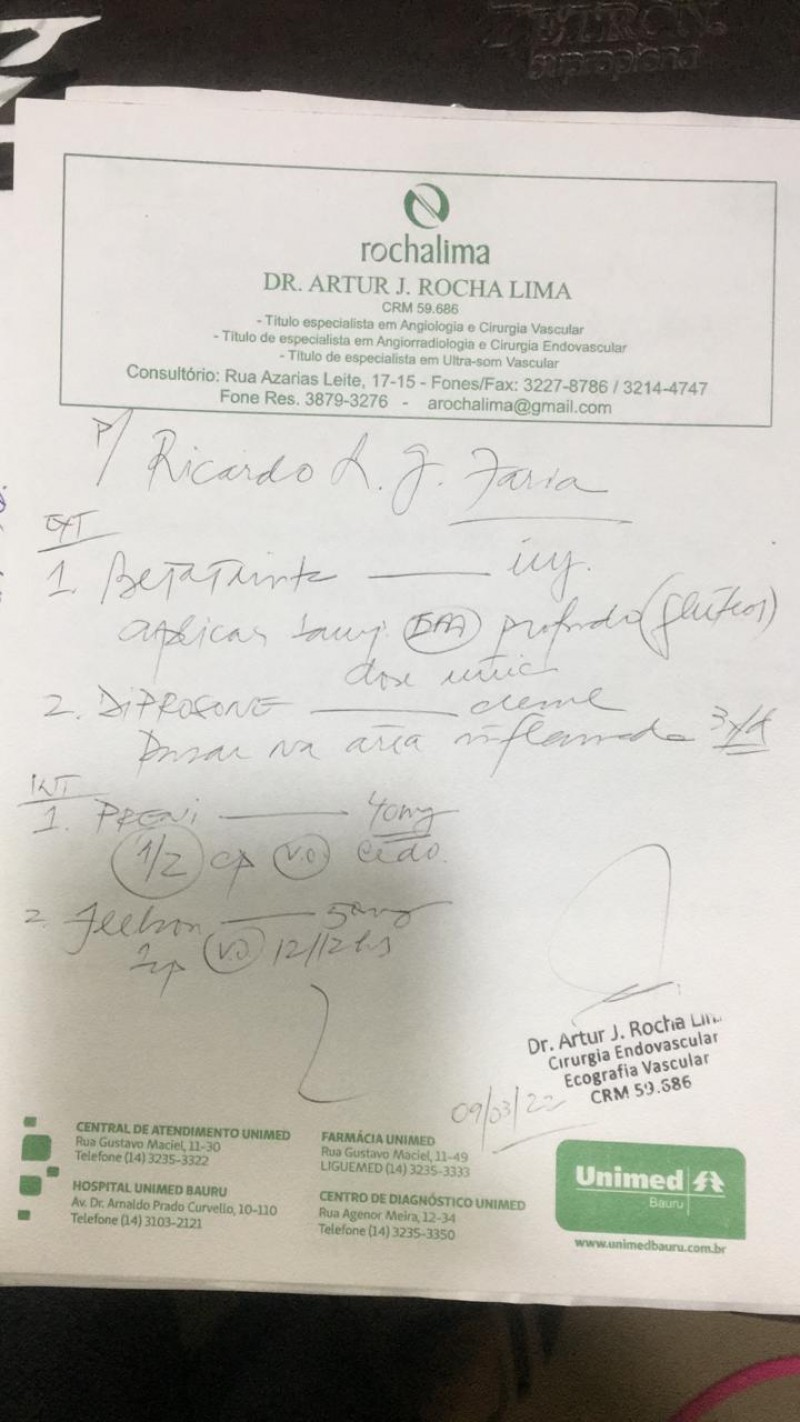 TETRON.
supropiona
rochalima
DR. ARTUR J. ROCHA LIMA
CRM 59.686
- Título especialista em Angiologia e Cirurgia Vascular
- Título de especialista em Angiorradiologia e Cirurgia Endovascular
- Título de especialista em Ultra-som Vascular
Consultório: Rua Azarias Leite, 17-15 - Fones/Fax: 3227-8786 / 3214-4747
Fone Res. 3879-3276 - arochalima@gmail.com
p/ Ricardo A. G. Faria
EXT
1. BETATRINTA inj.
aplicar profundo (glúteos)
dose única
2. DIPROSONE creme
Passar na área inflamada 3x/d
INT
1. PRENI 40mg
1/2 cp V.O cedo.
2. 50mg
1cp V.O 12/12hs
Dr. Artur J. Rocha Lim
Cirurgia Endovascular
Ecografia Vascular
CRM 59.686
09/03/22
CENTRAL DE ATENDIMENTO UNIMED
Rua Gustavo Maciel, 11-30
Telefone (14) 3235-3322
HOSPITAL UNIMED BAURU
Av. Dr. Arnaldo Prado Curvello, 10-110
Telefone (14) 3103-2121
FARMÁCIA UNIMED
Rua Gustavo Maciel, 11-49
LIGUEMED (14) 3235-3333
CENTRO DE DIAGNÓSTICO UNIMED
Rua Agenor Meira, 12-34
Telefone (14) 3235-3350
Unimed
Bauru
www.unimedbauru.com.br